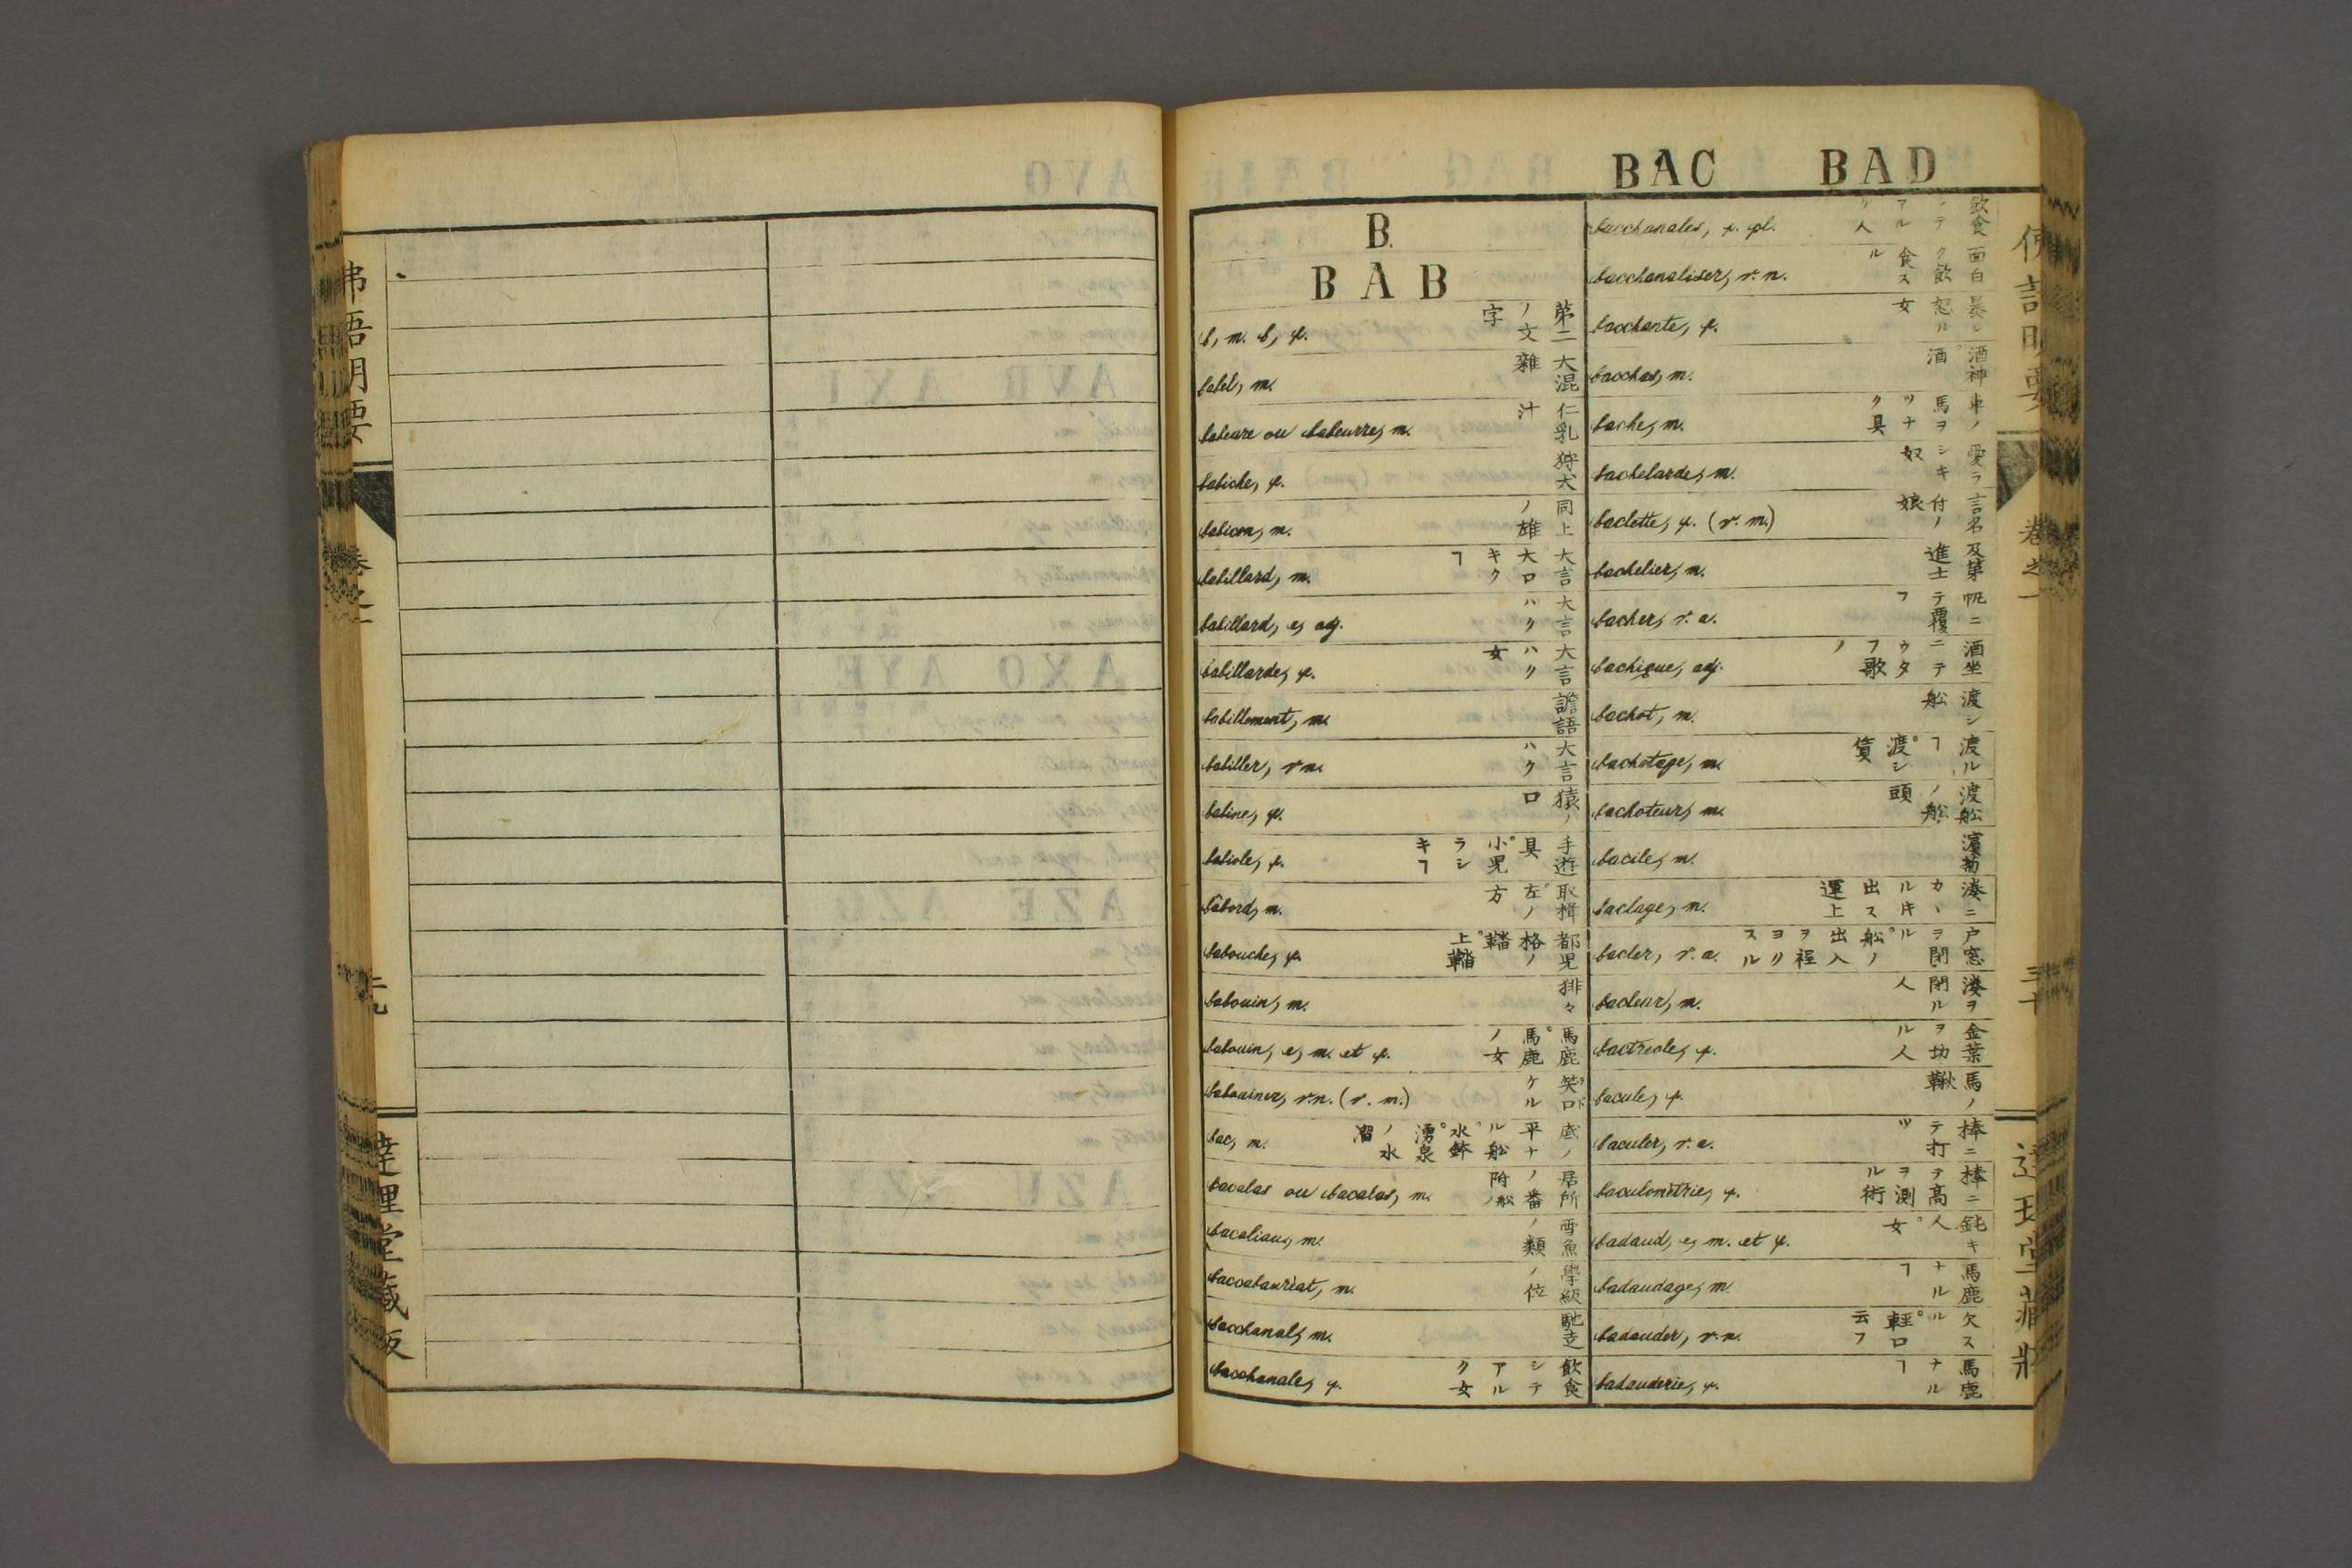 BAC BAD
B.
BAB
b, m. b, f. 第二ノ文字
babel, m. 大混雜
babeure ou babeurre, m. 仁乳汁
babiche, f. 狩犬
babicon, m. 同上ノ雄
babillard, m. 大言 大口キクヿ
babillard, e, adj. 大言ハク
babillarde, f. 大言ハク女
babillement, m. 譫語
babiller, v. n. 大言ハク
babine, f. 猿ノ口
babiole, f. 手遊具。小児ラシキヿ
bâbord, m. 取楫。左ノ方
babouche, f. 都児格ノ鞜。上鞜
babouin, m. 排々
babouin, e, m. et f. 馬鹿。馬鹿ノ女
babouiner, v. n. (v. m.) 笑ロケル
bac, m. 底ノ平ナル舩。水鉢。湧泉ノ水溜
bacalas ou bacalas, m. 居所ノ番附ノ舩
bacaliau, m. 雪魚ノ類
baccalauréat, m. 學級ノ位
bacchanal, m. 馳走
bacchanale, f. 飲食シテアルク女
bacchanales, f. pl. 飲食シテアルク人
bacchanaliser, v. n. 面白ク飲食スル
bacchante, f. 暴レ怒ル女
bacchus, m. 酒神。酒
bache, m. 車ノ馬ヲツナク具
bachelarde, m. 愛ラシキ奴
baclette, f. (v. m.) 言名付ノ娘
bachelier, m. 及第進士
bacher, v. a. 帆ニテ覆フ
bachique, adj. 酒坐ニテウタフ歌ノ
bachot, m. 渡シ舩
bachotage, m. 渡ルヿ。渡シ賃
bachoteur, m. 渡舩ノ舩頭
bacile, m. 濱菊
baclage, m. 湊ニカヽル𪜈出ス運上
bacler, v. a. 戸窓ヲ閉ル。舩ノ出入ヲ程ヨリスル
bacleur, m. 湊ヲ閉ル人
bactréole, f. 金葉ヲ切ル人
bacule, f. 馬ノ鞦
baculer, v. a. 棒ニテ打ツ
baculométrie, f. 棒ニテ高ヲ測ル術
badaud, e, m. et f. 鈍キ人。女
badaudage, m. 馬鹿ナルヿ
badauder, v. n. 欠スル。輕口云フ
badauderie, f. 馬鹿ナルヿ
卷之一
三十